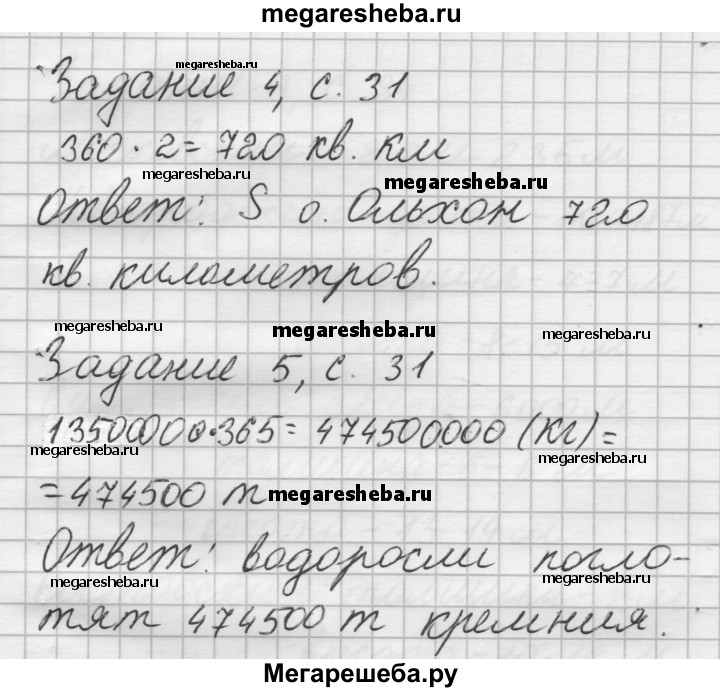 megaresheba.ru
megaresheba.ru
Задание 4, с. 31
360 · 2 = 720 кв. км
megaresheba.ru
megaresheba.ru
Ответ: S о. Ольхон 720
кв. километров.
megaresheba.ru
megaresheba.ru
megaresheba.ru
Задание 5, с. 31
1350000·365 = 474500000 (кг) =
megaresheba.ru
megaresheba.ru
= 474500 т
megaresheba.ru
Ответ: водоросли погло-
megaresheba.ru
megaresheba.ru
тят 474500 т кремния.
Мегарешеба.ру